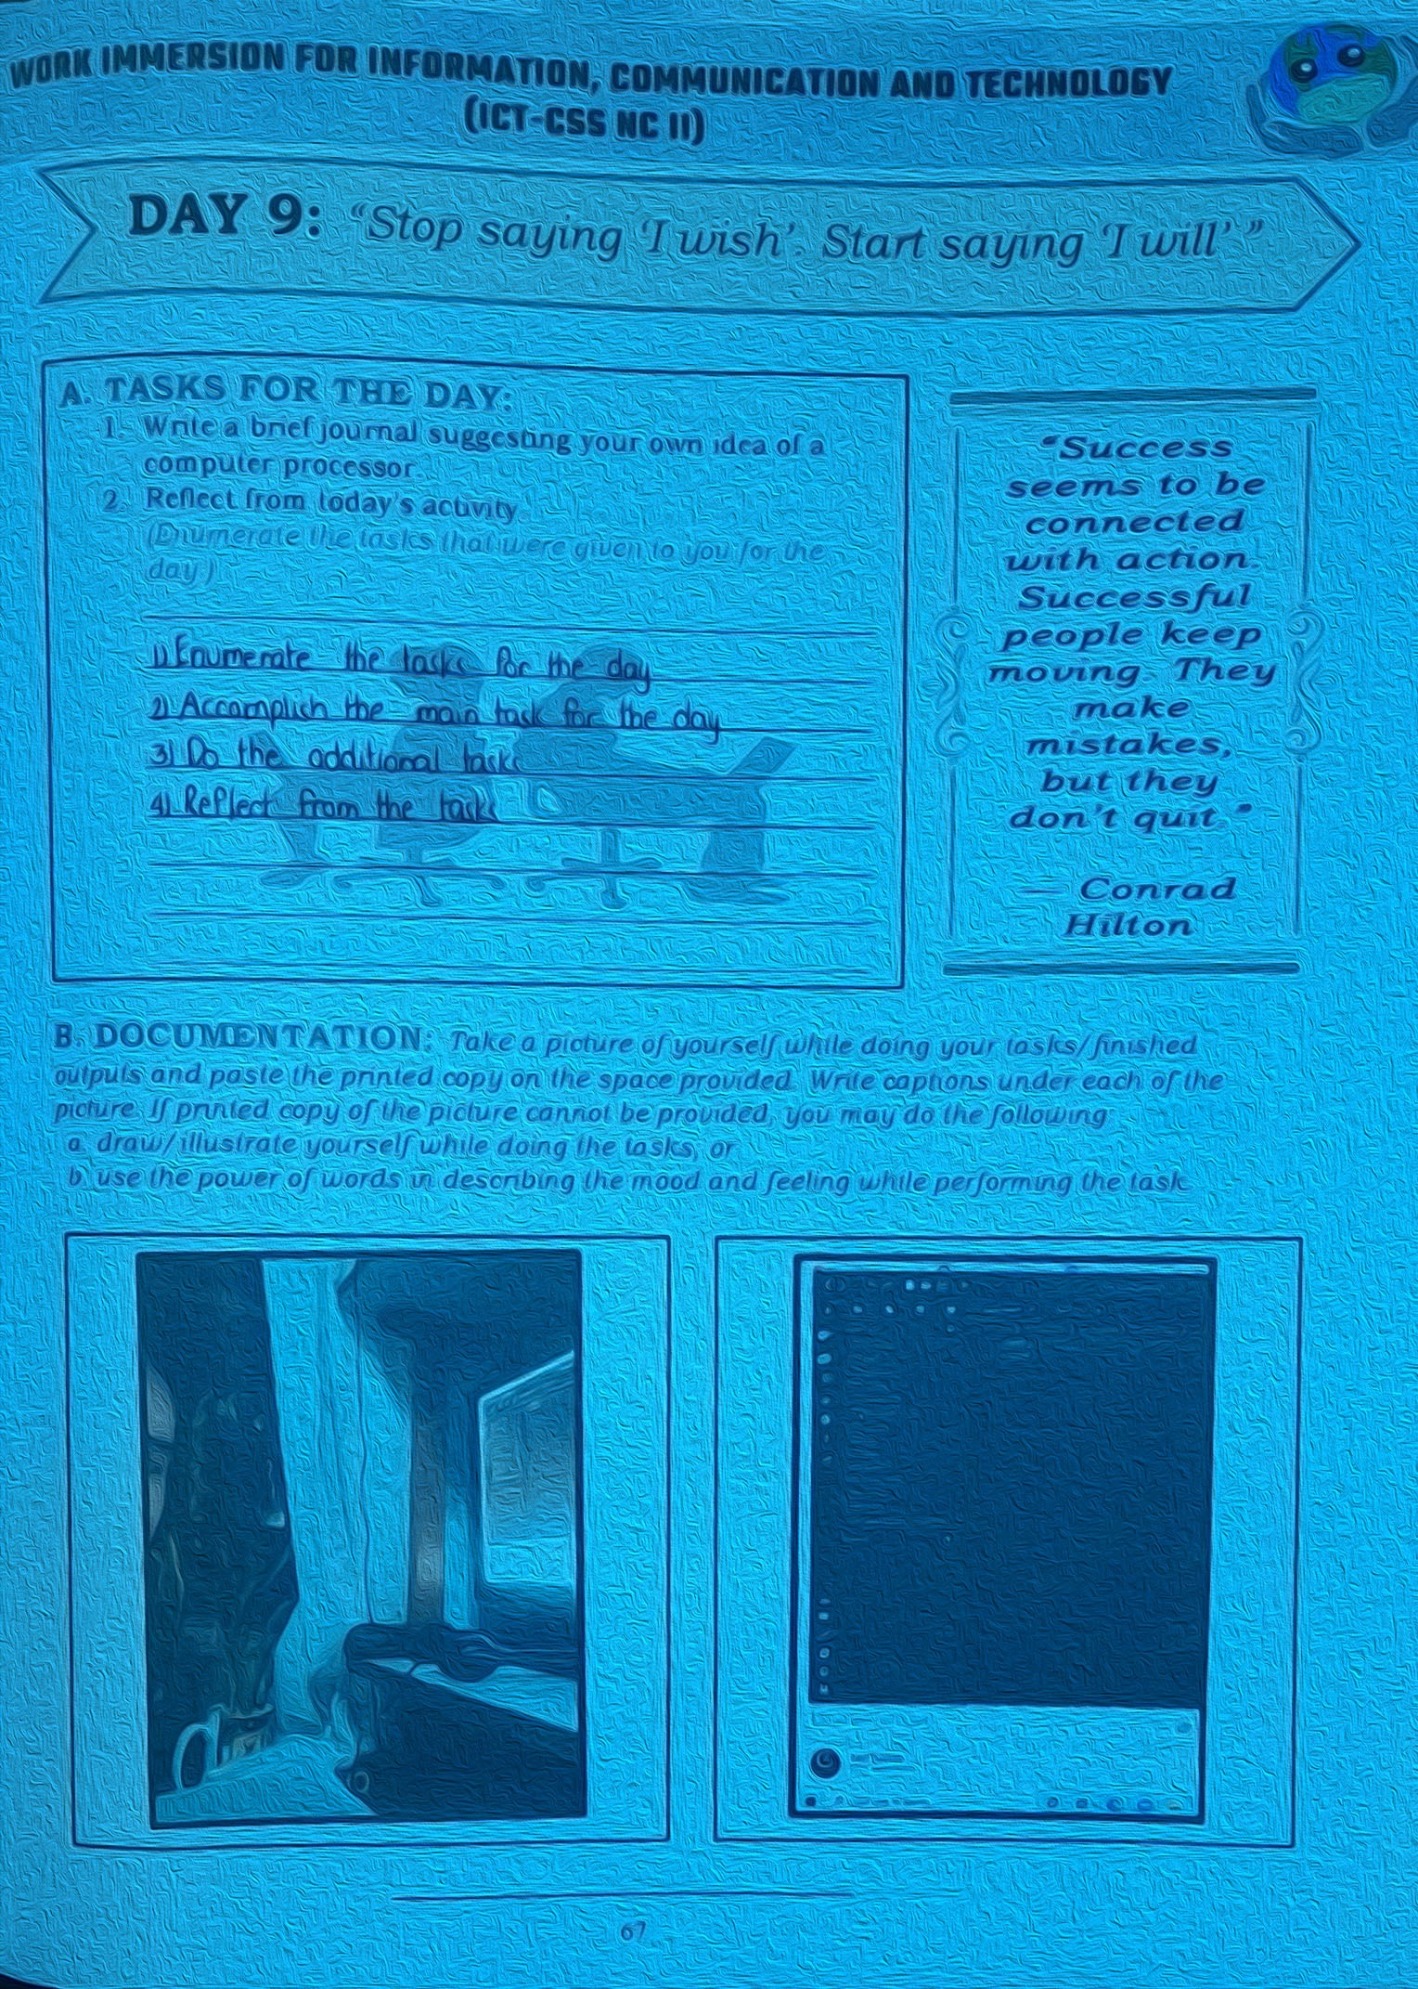 WORK IMMERSION FOR INFORMATION, COMMUNICATION AND TECHNOLOGY
(ICT-CSS NC II)
DAY 9: “Stop saying ‘I wish’. Start saying ‘I will’ ”
A. TASKS FOR THE DAY:
1. Write a brief journal suggesting your own idea of a
computer processor.
2. Reflect from today's activity.
(Enumerate the tasks that were given to you for the
day.)
1) Enumerate the tasks for the day
2) Accomplish the main task for the day
3) Do the additional tasks
4) Reflect from the tasks
“Success
seems to be
connected
with action.
Successful
people keep
moving. They
make
mistakes,
but they
don't quit.”
— Conrad
Hilton
B. DOCUMENTATION: Take a picture of yourself while doing your tasks/finished
outputs and paste the printed copy on the space provided. Write captions under each of the
picture. If printed copy of the picture cannot be provided, you may do the following:
a. draw/illustrate yourself while doing the tasks; or
b. use the power of words in describing the mood and feeling while performing the task.
67